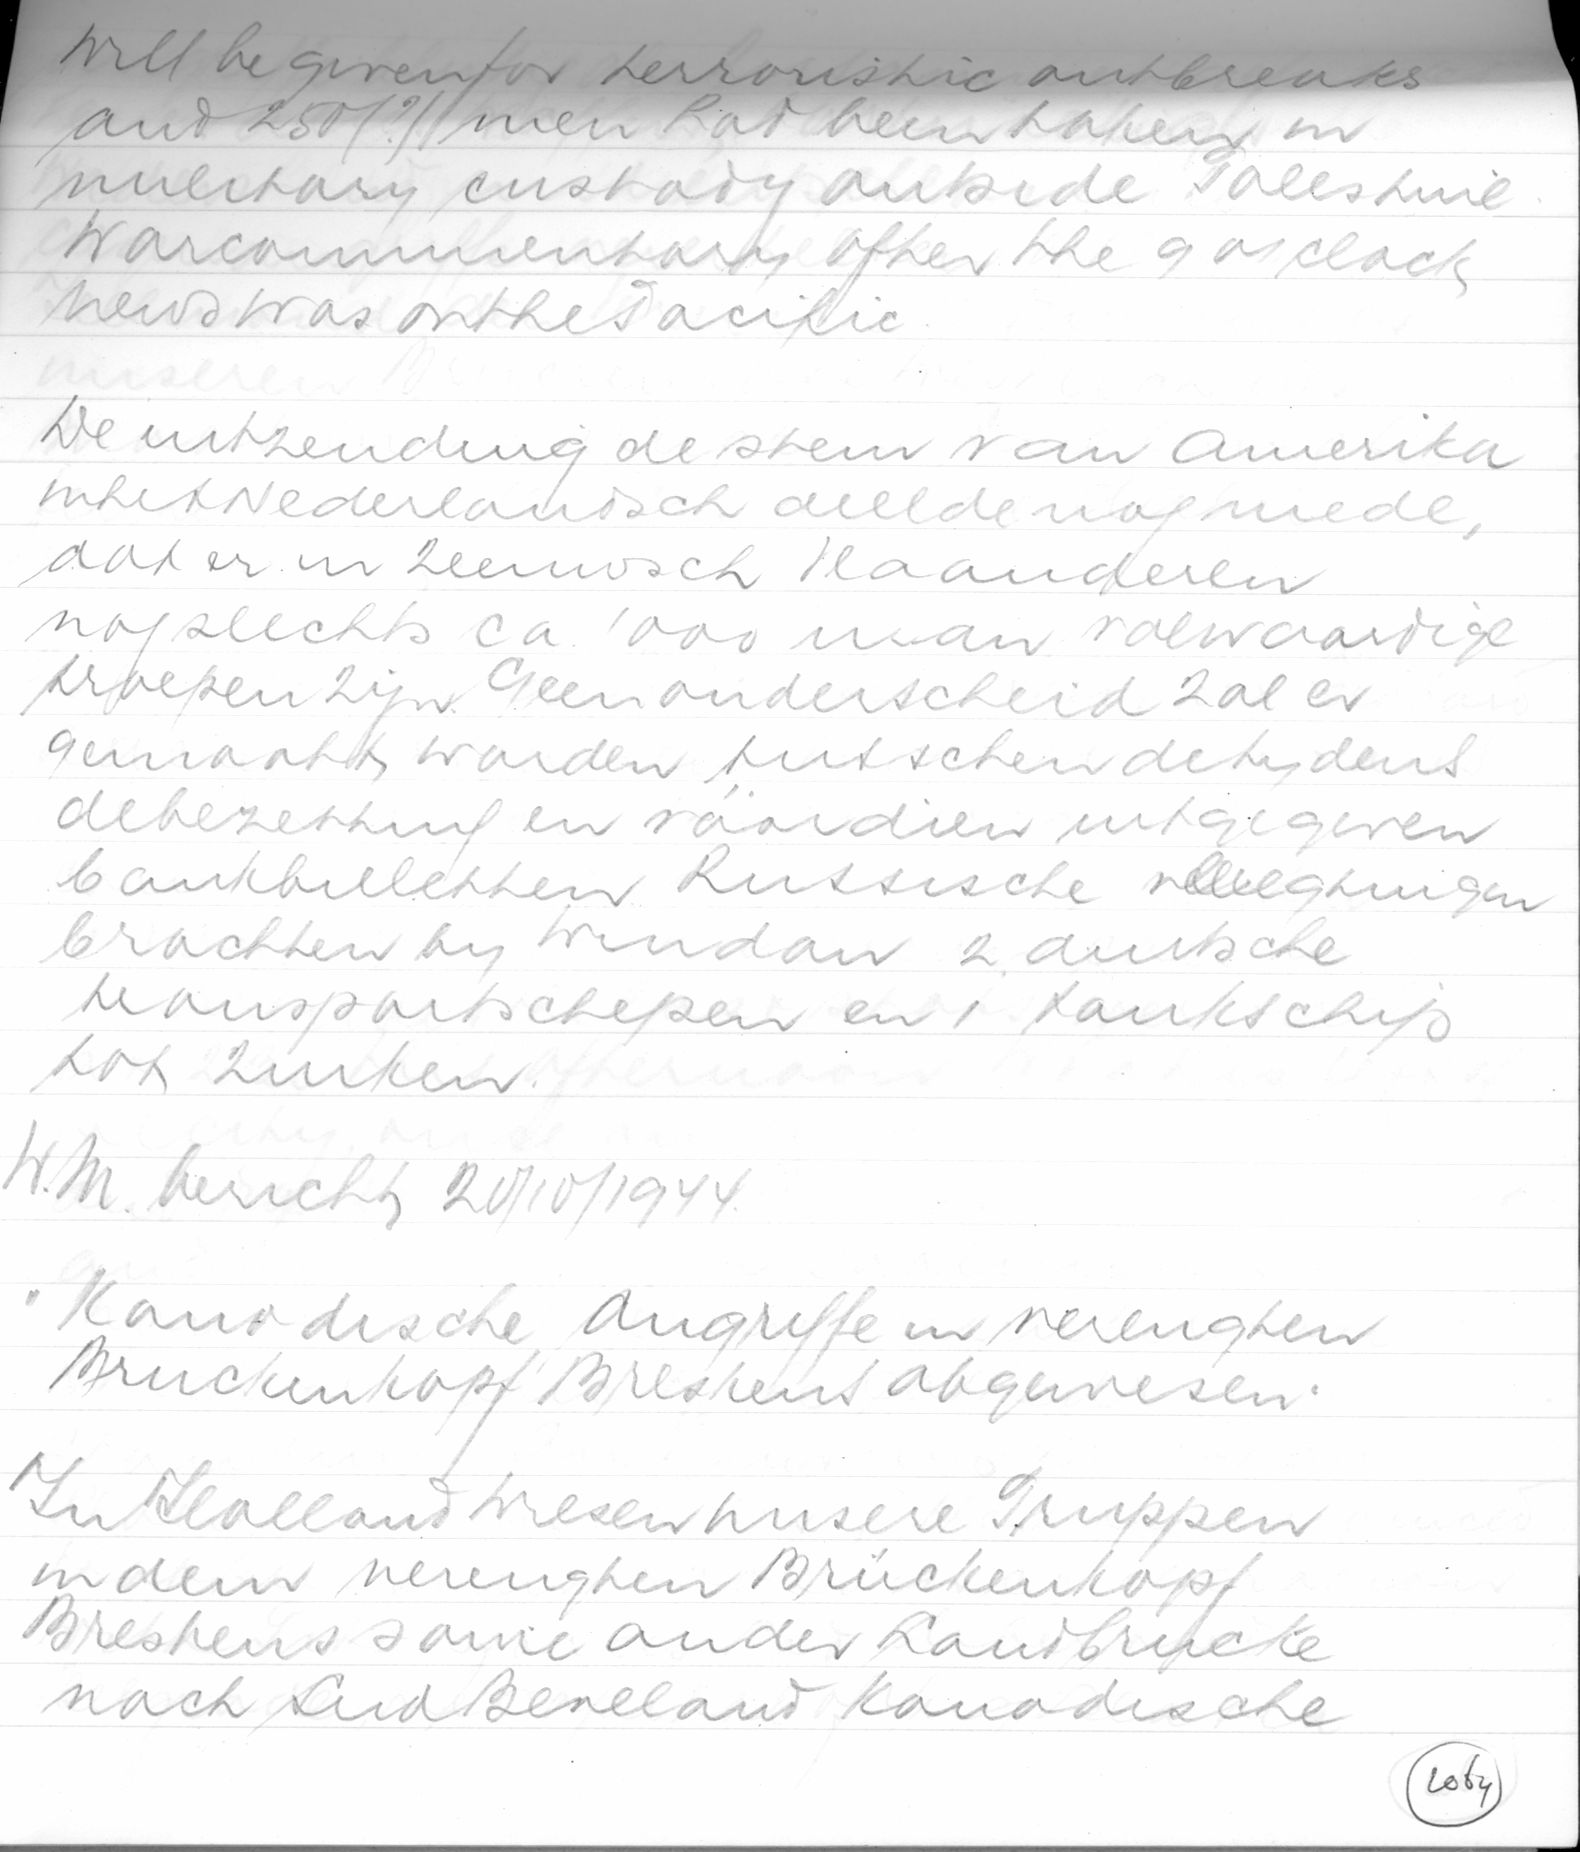 Will be given for terroristic outbreaks
and 250(?) men had been taken in
military custody outside Palestine.
Warcommentary after the 9 o'clock
news was on the Pacific.
De uitzending de stem van Amerika
in het Nederlandsch deelde nog mede,
dat er in Zeeuwsch Vlaanderen
nog slechts ca 1000 man volwaardige
troepen zijn. Geen onderscheid zal er
gemaakt worden tusschen de tydens
de bezetting en vóórdien uitgegeven
bankbiljetten. Russische vliegtuigen
brachten by Windau 2 duitsche
transportschepen en 1 tankschip
tot zinken.
W.M. bericht 20/10/1944.
"Kanadische Angriffe in verengten
Bruckenkopf Breskens abgewiesen.
In Holland wiesen unsere Truppen
in dem verengten Brückenkopf
Breskens sowie an der Landbrucke
nach Sud Beveland Kanadische